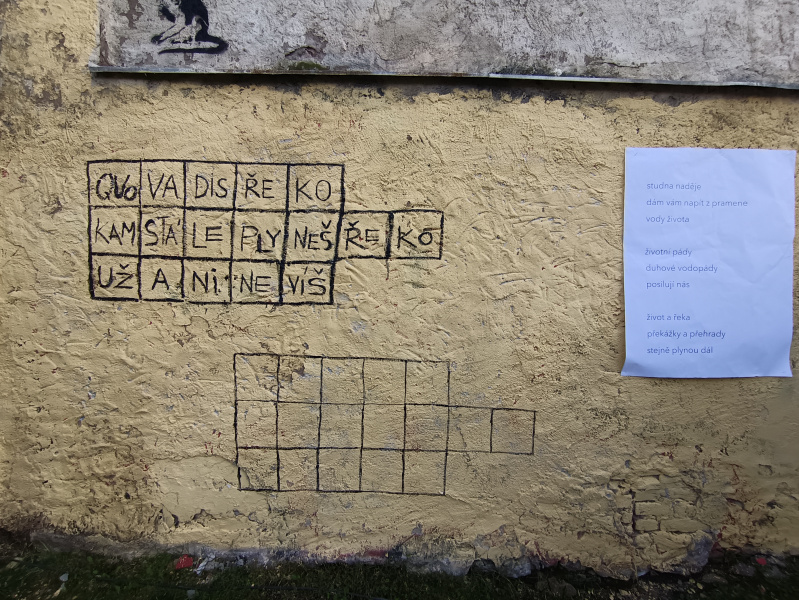 QVO VA DIS ŘE KO
KAM STÁ LE PLY NEŠ ŘE KO
UŽ A NI NE VÍŠ
studna naděje
dám vám napít z pramene
vody života
životní pády
duhové vodopády
posilují nás
život a řeka
překážky a přehrady
stejně plynou dál